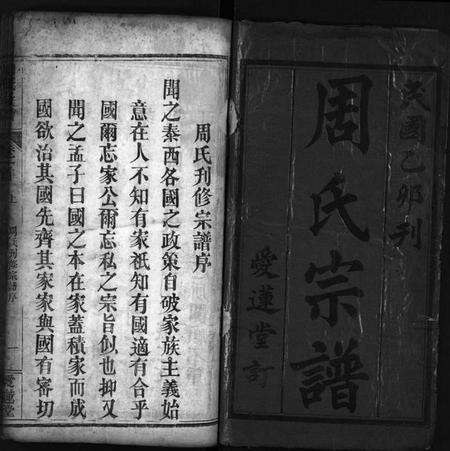 民國乙卯刊
周氏宗譜
愛蓮堂訂
周氏刋修宗譜序
聞之泰西各國之政策自破家族主義始
意在人不知有家祇知有國適有合乎
國爾忘家公爾忘私之宗旨似也抑又
聞之孟子曰國之本在家蓋積家而成
國欲治其國先齊其家家與國有審切